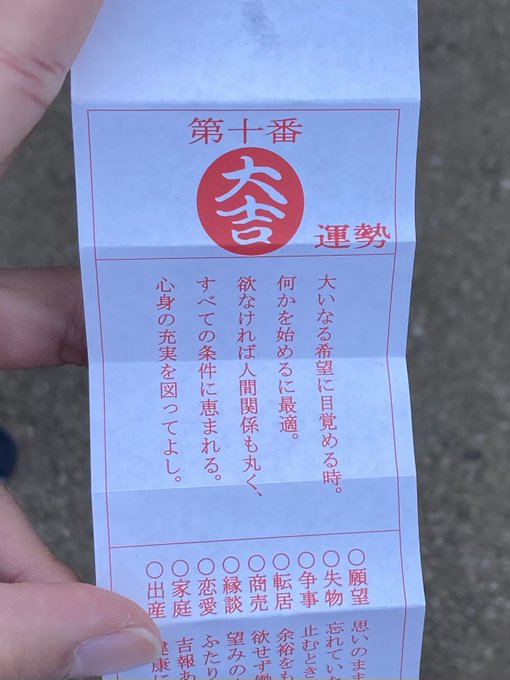 第十番
大吉
運勢
大いなる希望に目覚める時。
何かを始めるに最適。
欲なければ人間関係も丸く、
すべての条件に恵まれる。
心身の充実を図ってよし。
○願望 思いのまま
○失物 忘れていた
○争事 止むとき
○転居 余裕をも
○商売 欲せず働
○縁談 望みの
○恋愛 ふたり
○家庭 吉報あ
○出産 健康に